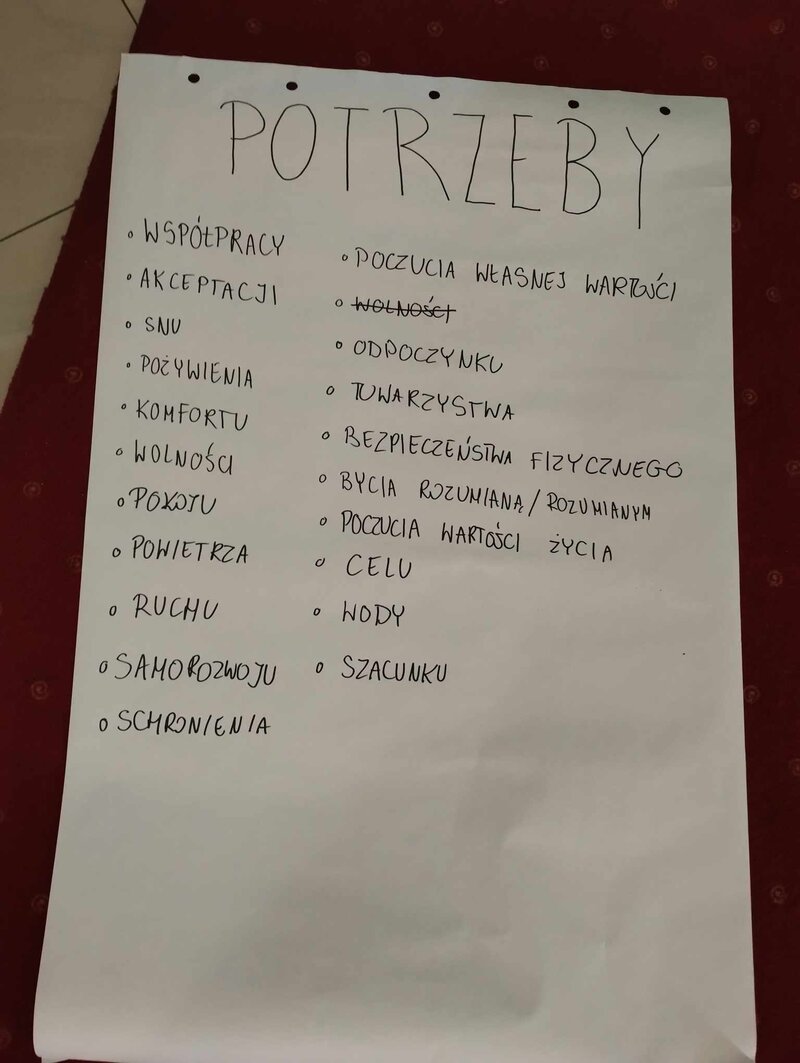 POTRZEBY
WSPÓŁPRACY
AKCEPTACJI
SNU
POŻYWIENIA
KOMFORTU
WOLNOŚCI
POKOJU
POWIETRZA
RUCHU
SAMOROZWOJU
SCHRONIENIA
POCZUCIA WŁASNEJ WARTOŚCI
WOLNOŚCI
ODPOCZYNKU
TOWARZYSTWA
BEZPIECZEŃSTWA FIZYCZNEGO
BYCIA ROZUMIANĄ/ROZUMIANYM
POCZUCIA WARTOŚCI ŻYCIA
CELU
WODY
SZACUNKU